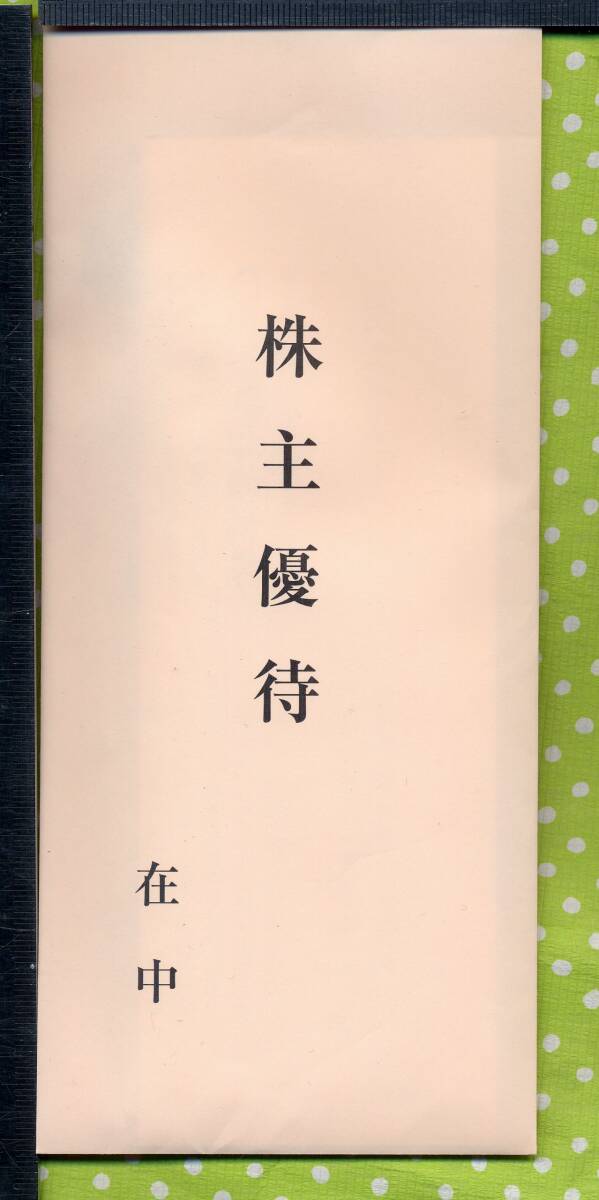 株主優待
在中